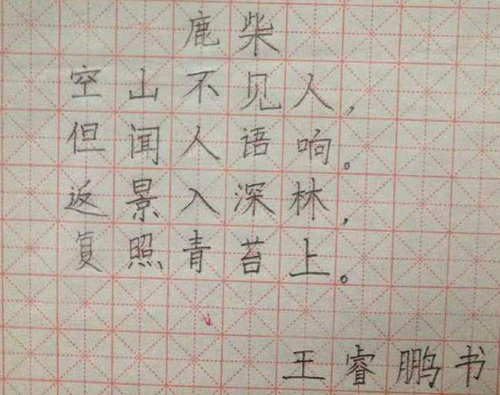 鹿柴
空山不见人，
但闻人语响。
返景入深林，
复照青苔上。
王睿鹏书